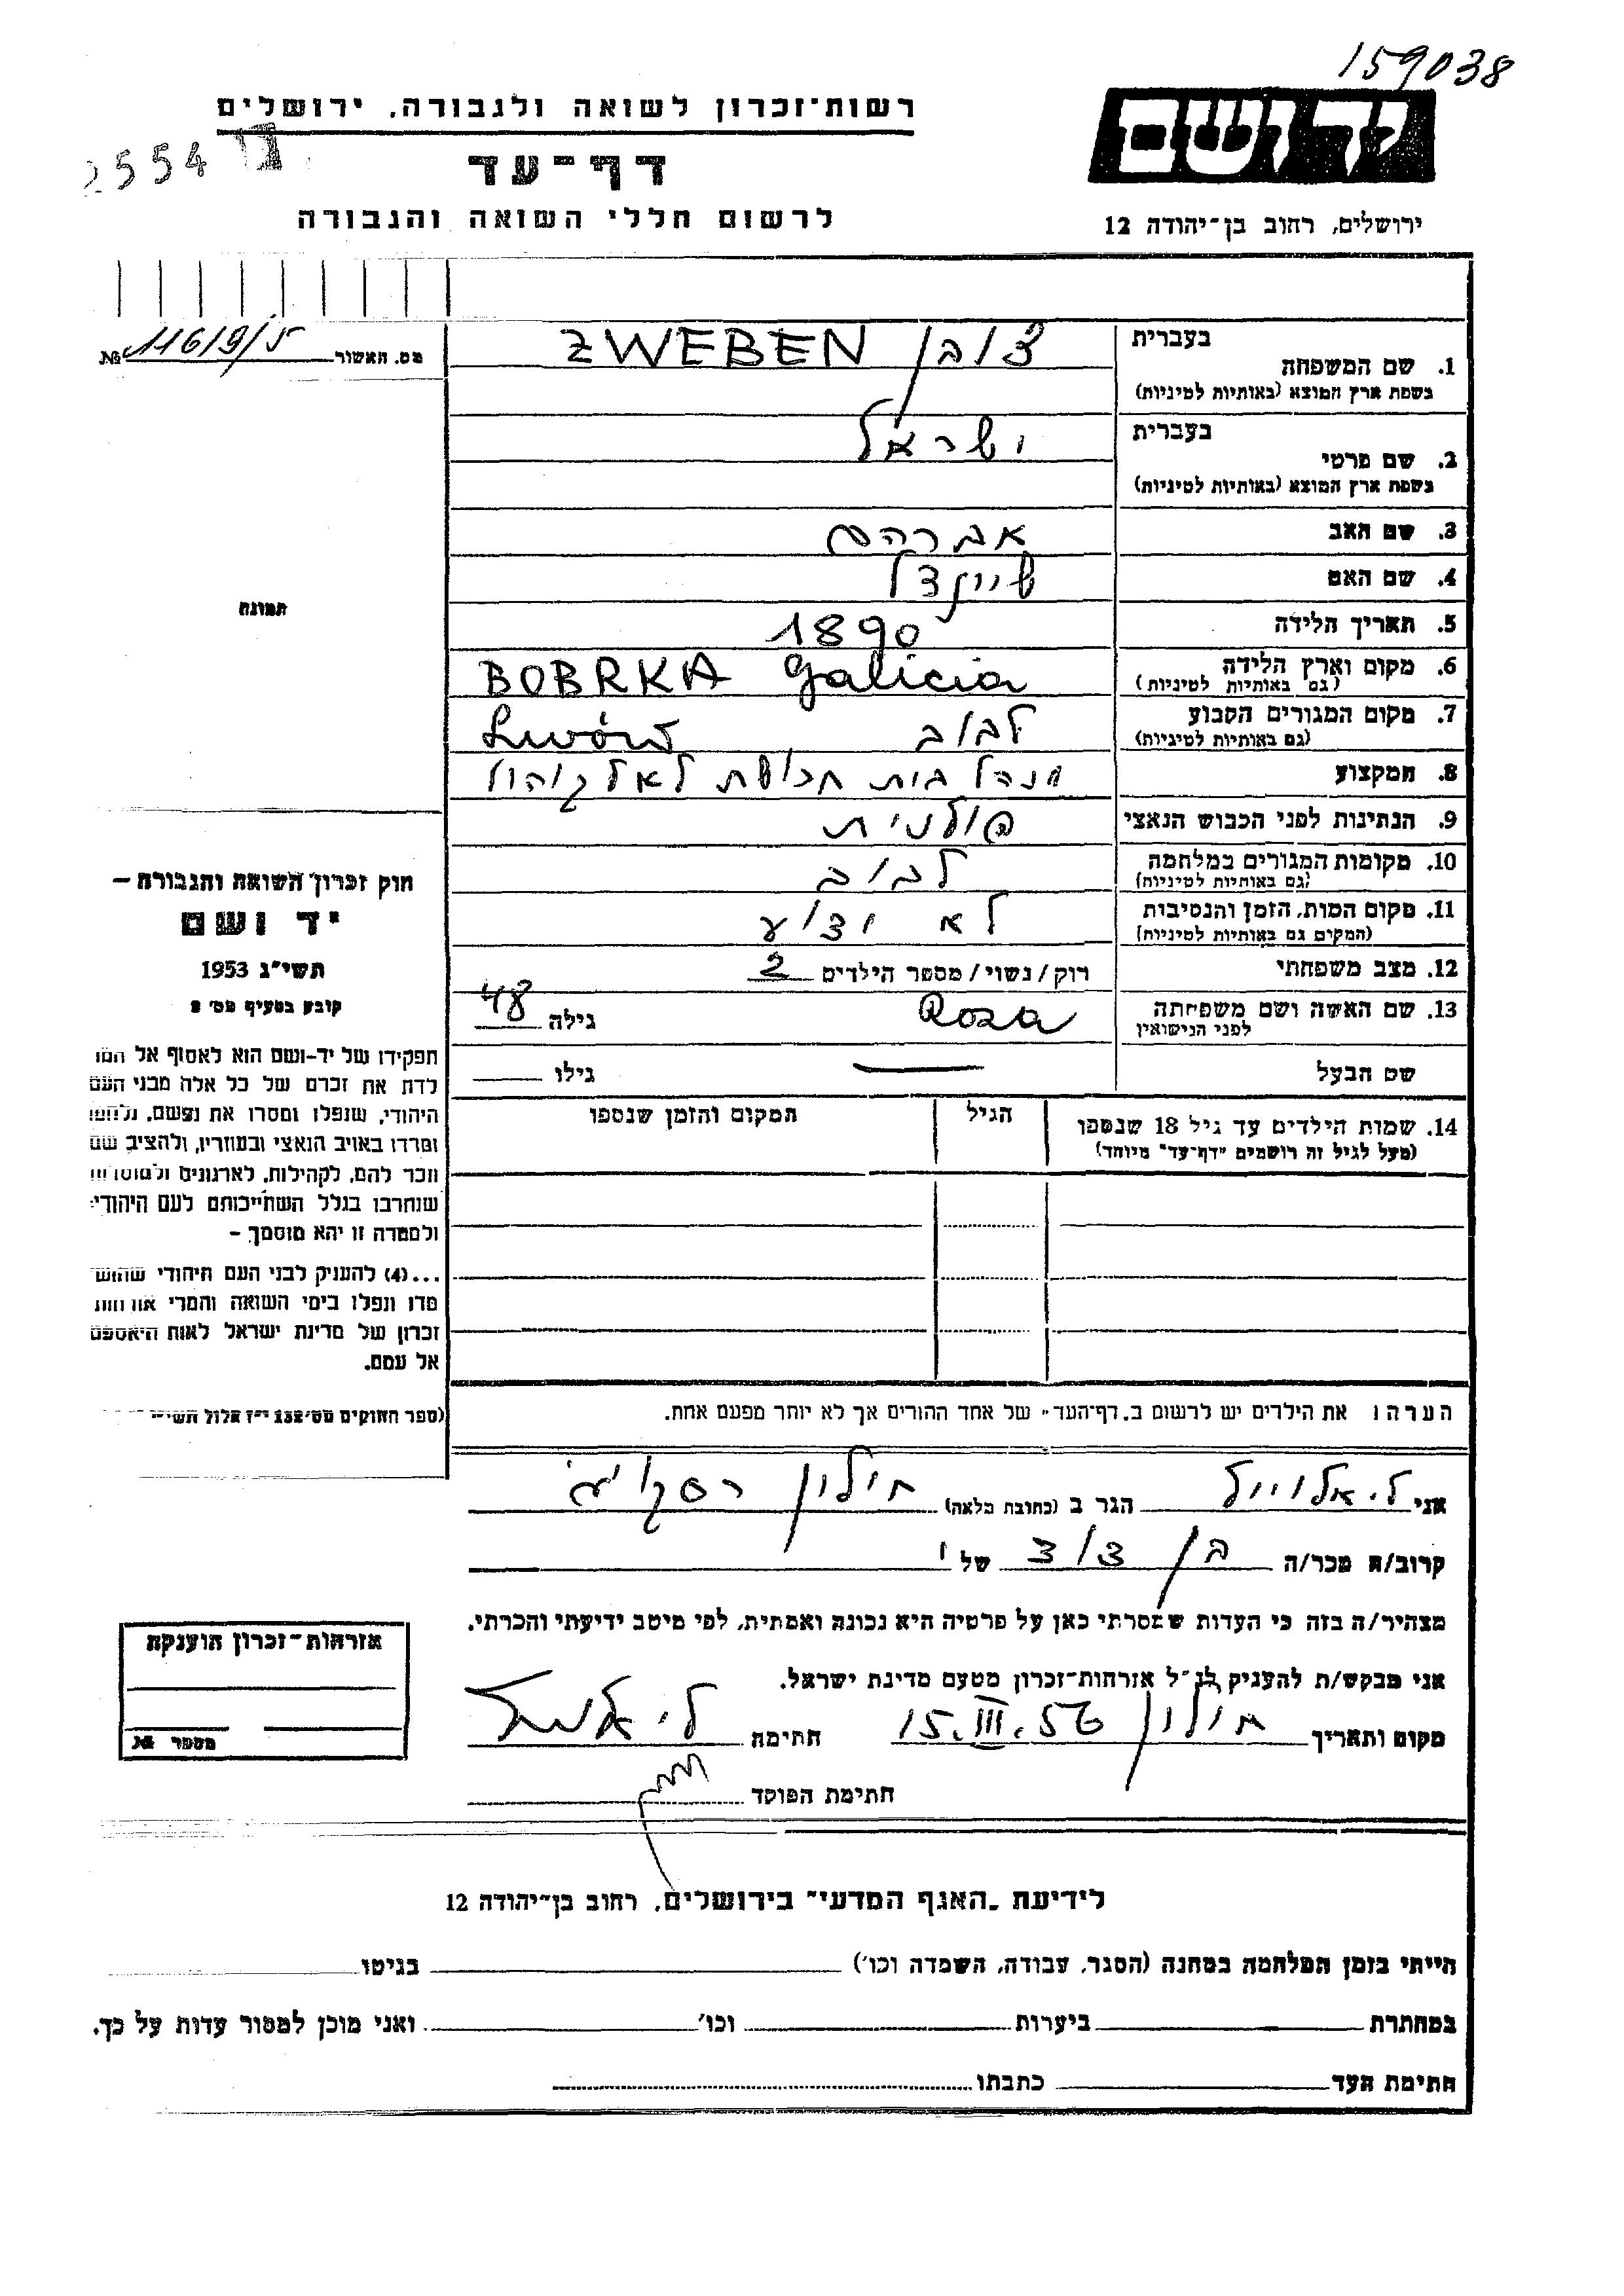 159038
רשות-זכרון לשואה ולגבורה, ירושלים
יד ושם
2554
דף-עד
לרשום חללי השואה והגבורה
ירושלים, רחוב בן-יהודה 12
מס. האשור № 116/9/5
1. שם המשפחה בעברית ZWEBEN
בשפת ארץ המוצא (באותיות לטיניות)
2. שם פרטי בעברית ישראל
בשפת ארץ המוצא (באותיות לטיניות)
3. שם האב אברהם
4. שם האם שיינדל
5. תאריך הלידה 1890
6. מקום וארץ הלידה BOBRKA Galicia
(גם באותיות לטיניות)
7. מקום המגורים הקבוע לבוב Lwów
(גם באותיות לטיניות)
8. המקצוע מנהל בית חרושת לאלכוהול
9. הנתינות לפני הכבוש הנאצי פולנית
10. מקומות המגורים במלחמה לבוב
(גם באותיות לטיניות)
11. מקום המות, הזמן והנסיבות לא ידוע
(המקום גם באותיות לטיניות)
12. מצב משפחתי רוק/נשוי/מספר הילדים 2
13. שם האשה ושם משפחתה Roza גילה 48
לפני הנישואין
שם הבעל גילו
14. שמות הילדים עד גיל 18 שנספו הגיל המקום והזמן שנספו
(מעל לגיל זה רושמים "דף-עד" מיוחד)
הערה: את הילדים יש לרשום ב"דף-העד" של אחד ההורים אך לא יותר מפעם אחת.
תמונה
חוק זכרון השואה והגבורה –
יד ושם
תשי"ג 1953
קובע בסעיף מס' 2
תפקידו של יד-ושם הוא לאסוף אל המו
לדת את זכרם של כל אלה מבני העם
היהודי, שנפלו ומסרו את נפשם, נלחמו
ומרדו באויב הנאצי ובעוזריו, ולהציב שם
וזכר להם, לקהילות, לארגונים ולמוסדות
שנחרבו בגלל השתייכותם לעם היהודי
ולמטרה זו יהא מוסמך –
...(4) להעניק לבני העם היהודי שהוש
מדו ונפלו בימי השואה והמרי אזרחות
זכרון של מדינת ישראל לאות היאספם
אל עמם.
(ספר החוקים מס' 132 י"ז אלול תשי"
אני הגר ב (כתובת מלאה) חולון
קרוב/ה מכר/ה בן דוד של
מצהיר/ה בזה כי העדות שמסרתי כאן על פרטיה היא נכונה ואמתית, לפי מיטב ידיעתי והכרתי.
אני מבקש/ת להעניק לנ"ל אזרחות-זכרון מטעם מדינת ישראל.
מקום ותאריך חולון 15.III.56 חתימה
חתימת הפוקד
אזרחות-זכרון הוענקה
מספר №
לידיעת "האגף המדעי" בירושלים, רחוב בן-יהודה 12
הייתי בזמן המלחמה במחנה (הסגר, עבודה, השמדה וכו') בגיטו
במחתרת ביערות וכו' ואני מוכן למסור עדות על כך.
חתימת העד כתבתו